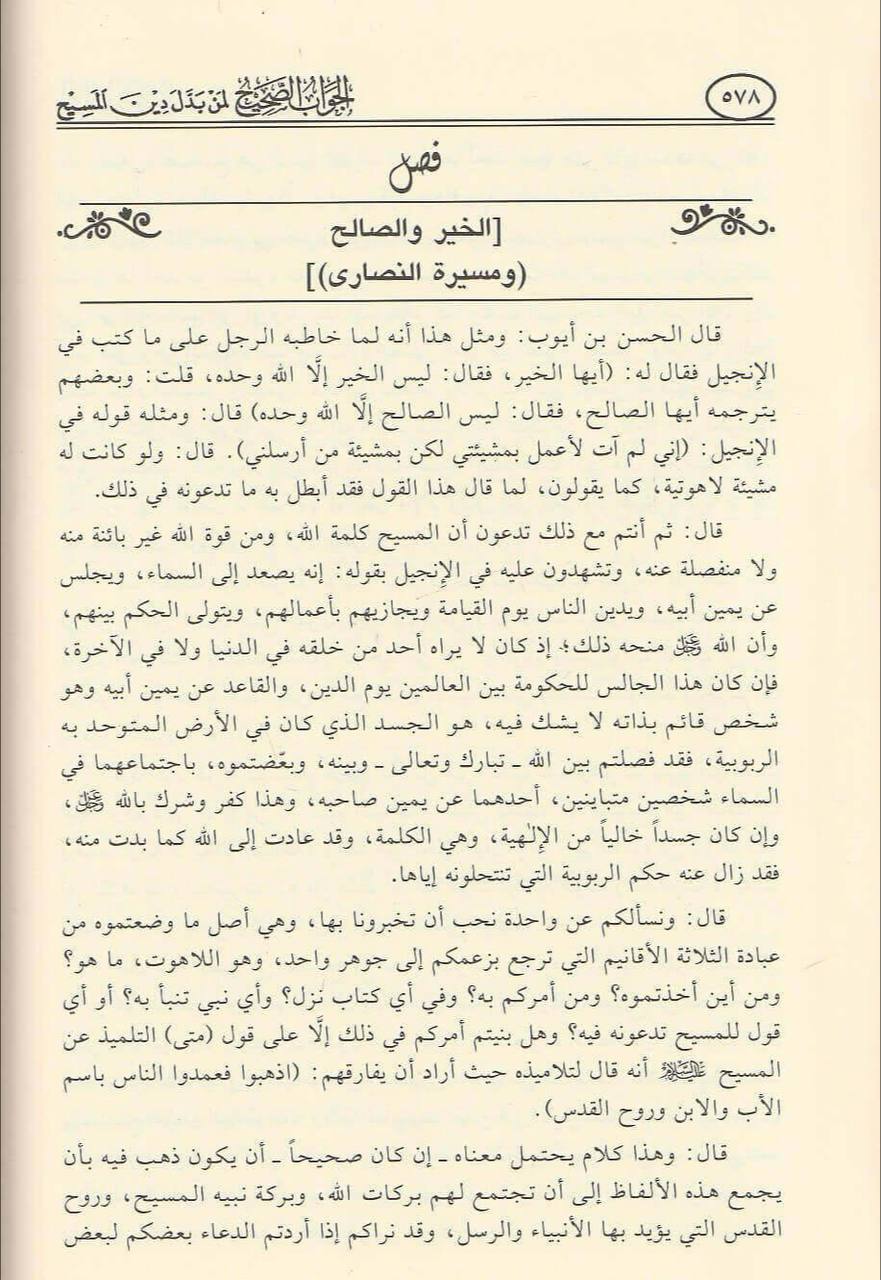 ٥٧٨
الجواب الصحيح لمن بدل دين المسيح
فصل
[الخير والصالح
(ومسيرة النصارى)]
قال الحسن بن أيوب: ومثل هذا أنه لما خاطبه الرجل على ما كتب في
الإنجيل فقال له: (أيها الخير، فقال: ليس الخير إلَّا الله وحده، قلت: وبعضهم
يترجمه أيها الصالح، فقال: ليس الصالح إلَّا الله وحده) قال: ومثله قوله في
الإنجيل: (إني لم آت لأعمل بمشيئتي لكن بمشيئة من أرسلني). قال: ولو كانت له
مشيئة لاهوتية، كما يقولون، لما قال هذا القول فقد أبطل به ما تدعونه في ذلك.
قال: ثم أنتم مع ذلك تدعون أن المسيح كلمة الله، ومن قوة الله غير بائنة منه
ولا منفصلة عنه، وتشهدون عليه في الإنجيل بقوله: إنه يصعد إلى السماء، ويجلس
عن يمين أبيه، ويدين الناس يوم القيامة ويجازيهم بأعمالهم، ويتولى الحكم بينهم،
وأن الله عز وجل منحه ذلك؛ إذ كان لا يراه أحد من خلقه في الدنيا ولا في الآخرة،
فإن كان هذا الجالس للحكومة بين العالمين يوم الدين، والقاعد عن يمين أبيه وهو
شخص قائم بذاته لا يشك فيه، هو الجسد الذي كان في الأرض المتوحد به
الربوبية، فقد فصلتم بين الله ـ تبارك وتعالى ـ وبينه، وبعّضتموه، باجتماعهما في
السماء شخصين متباينين، أحدهما عن يمين صاحبه، وهذا كفر وشرك بالله عز وجل،
وإن كان جسداً خالياً من الإلٰهية، وهي الكلمة، وقد عادت إلى الله كما بدت منه،
فقد زال عنه حكم الربوبية التي تنتحلونه إياها.
قال: ونسألكم عن واحدة نحب أن تخبرونا بها، وهي أصل ما وضعتموه من
عبادة الثلاثة الأقانيم التي ترجع بزعمكم إلى جوهر واحد، وهو اللاهوت، ما هو؟
ومن أين أخذتموه؟ ومن أمركم به؟ وفي أي كتاب نزل؟ وأي نبي تنبأ به؟ أو أي
قول للمسيح تدعونه فيه؟ وهل بنيتم أمركم في ذلك إلَّا على قول (متى) التلميذ عن
المسيح عليه السلام أنه قال لتلاميذه حيث أراد أن يفارقهم: (اذهبوا فعمدوا الناس باسم
الأب والابن وروح القدس).
قال: وهذا كلام يحتمل معناه ـ إن كان صحيحاً ـ أن يكون ذهب فيه بأن
يجمع هذه الألفاظ إلى أن تجتمع لهم بركات الله، وبركة نبيه المسيح، وروح
القدس التي يؤيد بها الأنبياء والرسل، وقد نراكم إذا أردتم الدعاء بعضكم لبعض